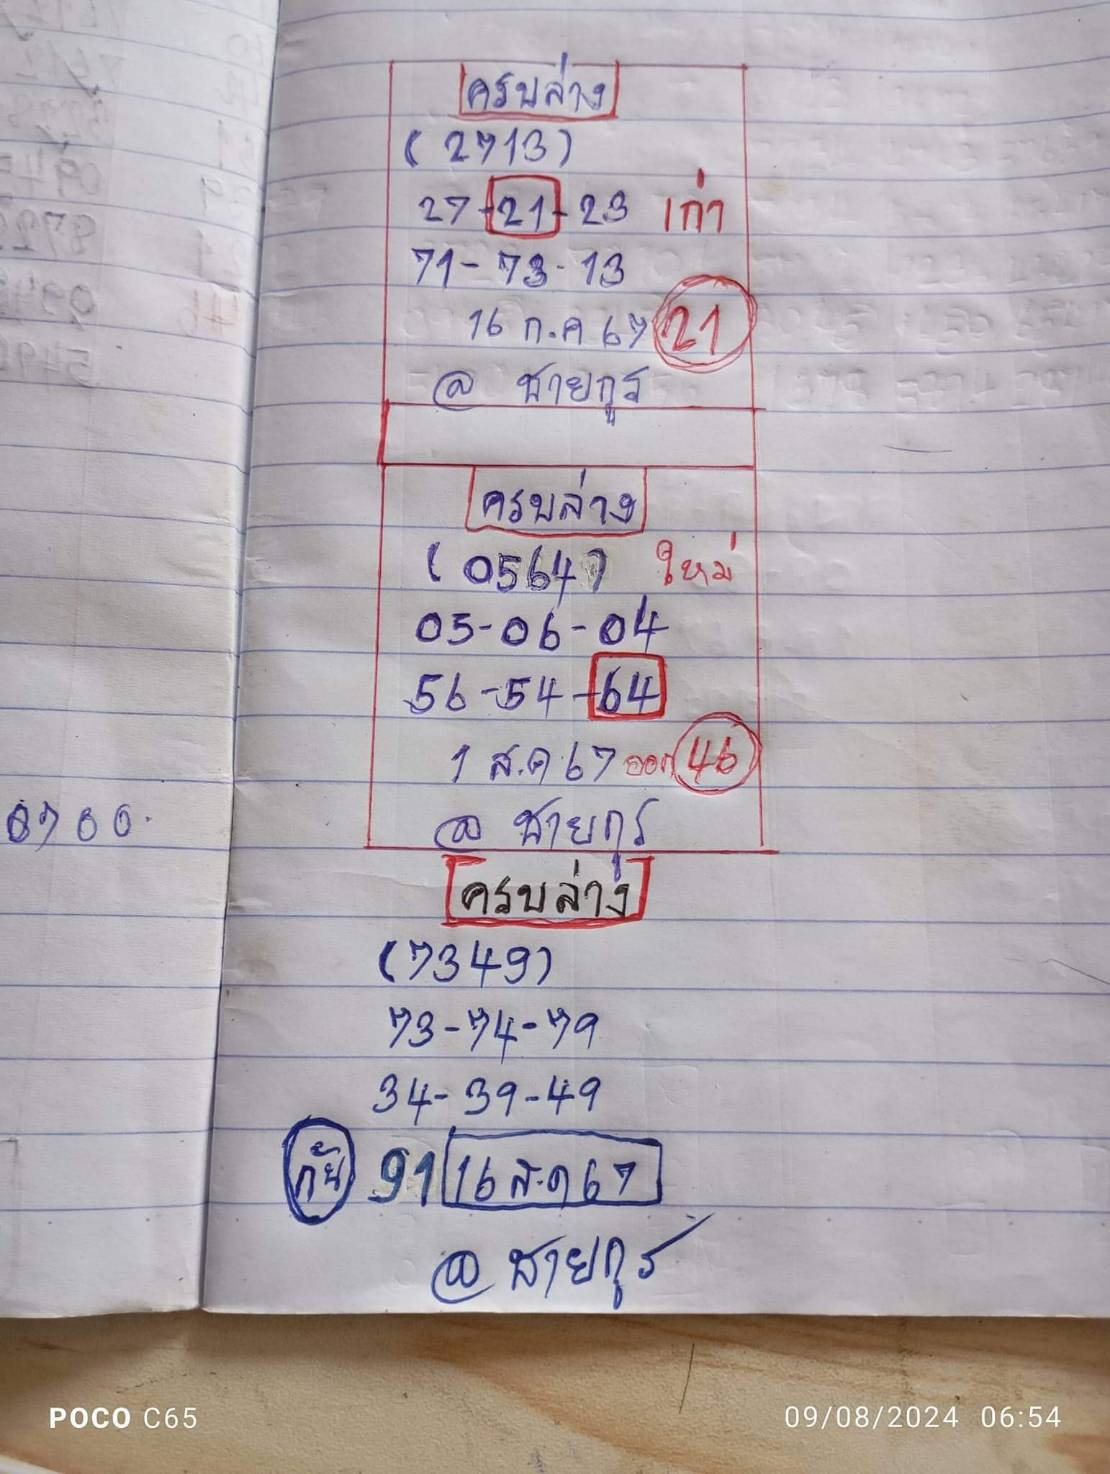 ครบล่าง
(2713)
27-21-23 เก่า
71-73-13
16 ก.ค 67 21
@ ชายกูร
ครบล่าง
(0564) ใหม่
05-06-04
56-54-64
1 ส.ค 67 ออก 46
@ ชายกูร
ครบล่าง
(7349)
73-74-79
34-39-49
กัน 91 16 ส.ค 67
@ ชายกูร
POCO C65
09/08/2024 06:54